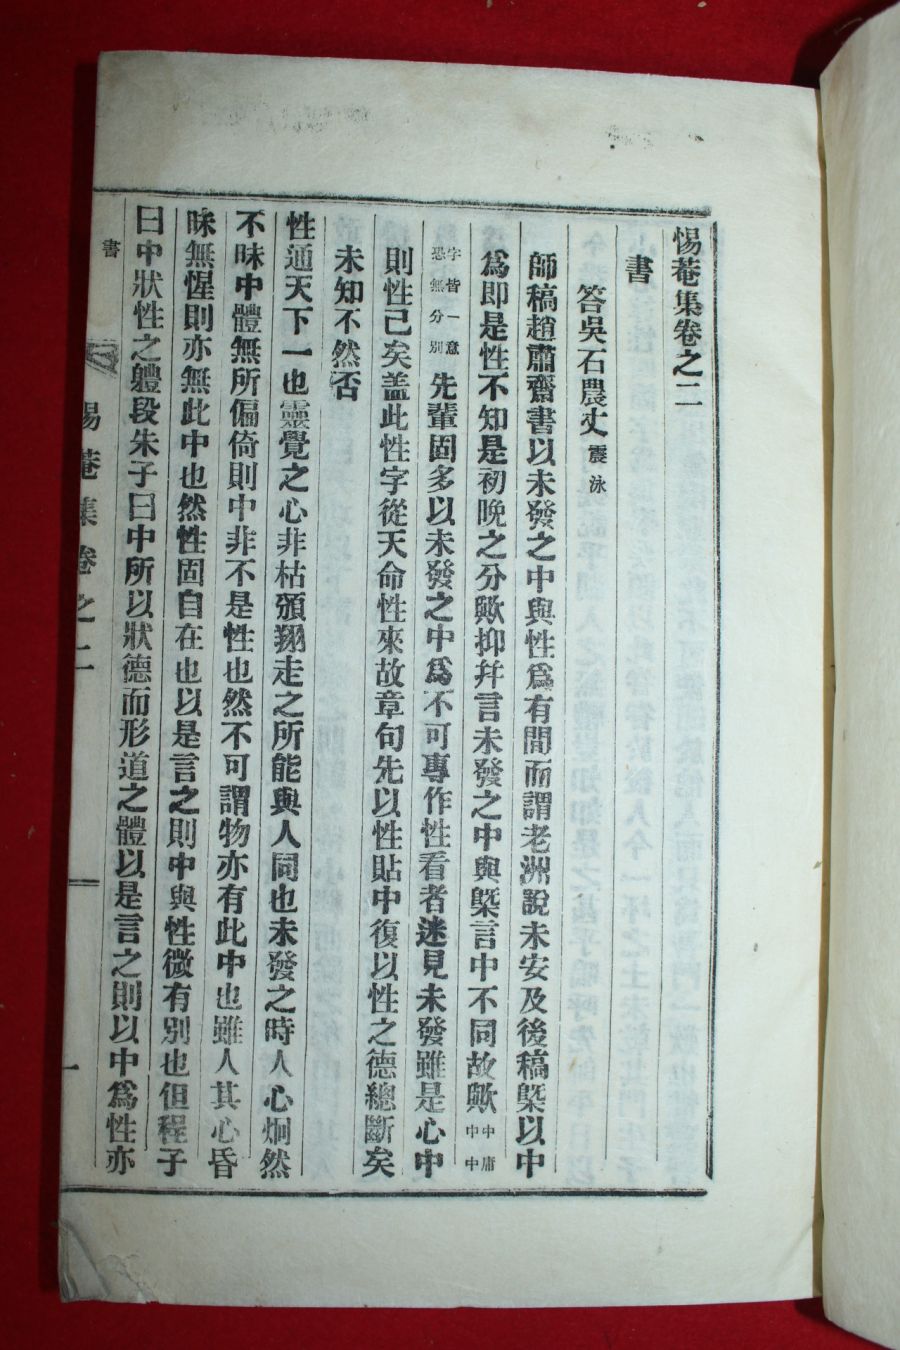 惕菴集卷之二
書
答吳石農丈 震泳
師稿趙肅齋書以未發之中與性爲有間而謂老洲說未安及後稿槩以中
爲即是性不知是初晚之分歟抑幷言未發之中與槩言中不同故歟 中庸中中
字皆一意恐無分別 先輩固多以未發之中爲不可專作性看者迷見未發雖是心中
則性已矣盖此性字從天命性來故章句先以性貼中復以性之德總斷矣
未知不然否
性通天下一也靈覺之心非枯頒翔走之所能與人同也未發之時人心炯然
不昧中體無所偏倚則中非不是性也然不可謂物亦有此中也雖人其心昏
昧無惺則亦無此中也然性固自在也以是言之則中與性微有別也但程子
曰中狀性之軆段朱子曰中所以狀德而形道之體以是言之則以中爲性亦
書
惕菴集卷之二
一